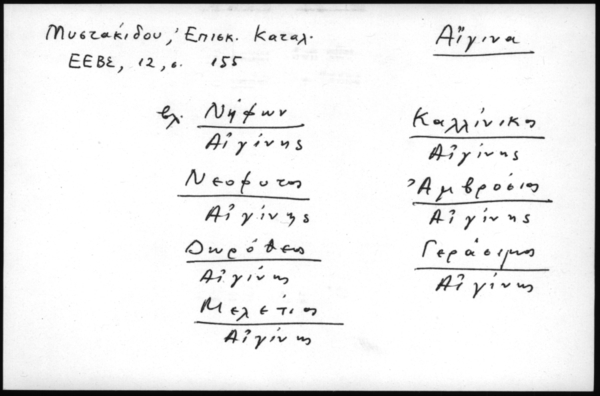 Μυστακίδου, Ἐπισκ. Καταλ.
Αἴγινα
ΕΕΒΣ, 12, σ. 155
βλ. Νήφων
Αἰγίνης
Νεόφυτος
Αἰγίνης
Δωρόθεος
Αἰγίνης
Μελέτιος
Αἰγίνης
Καλλίνικος
Αἰγίνης
Ἀμβρόσιος
Αἰγίνης
Γεράσιμος
Αἰγίνης